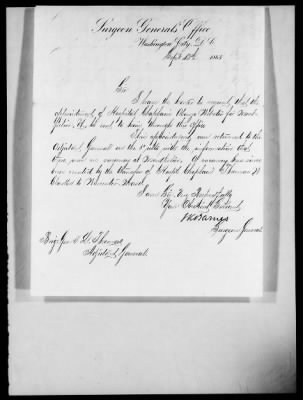 Surgeon General's Office
Washington City, D.C.
Sept 12th 1863
Sir
I have the honor to request, that the
appointment of Hospital Chaplain Alonzo Webster for
be sent to him through this Office
This appointment was returned to the
Adjutant General on the with the information that
there was no vacancy at A vacancy has since
been created by the transfer of Hospital Chaplain
to
I am Sir, Very Respectfully
Your Obedient Servant,
J K Barnes
Surgeon General
Brig. Gen. L. Thomas
Adjutant General